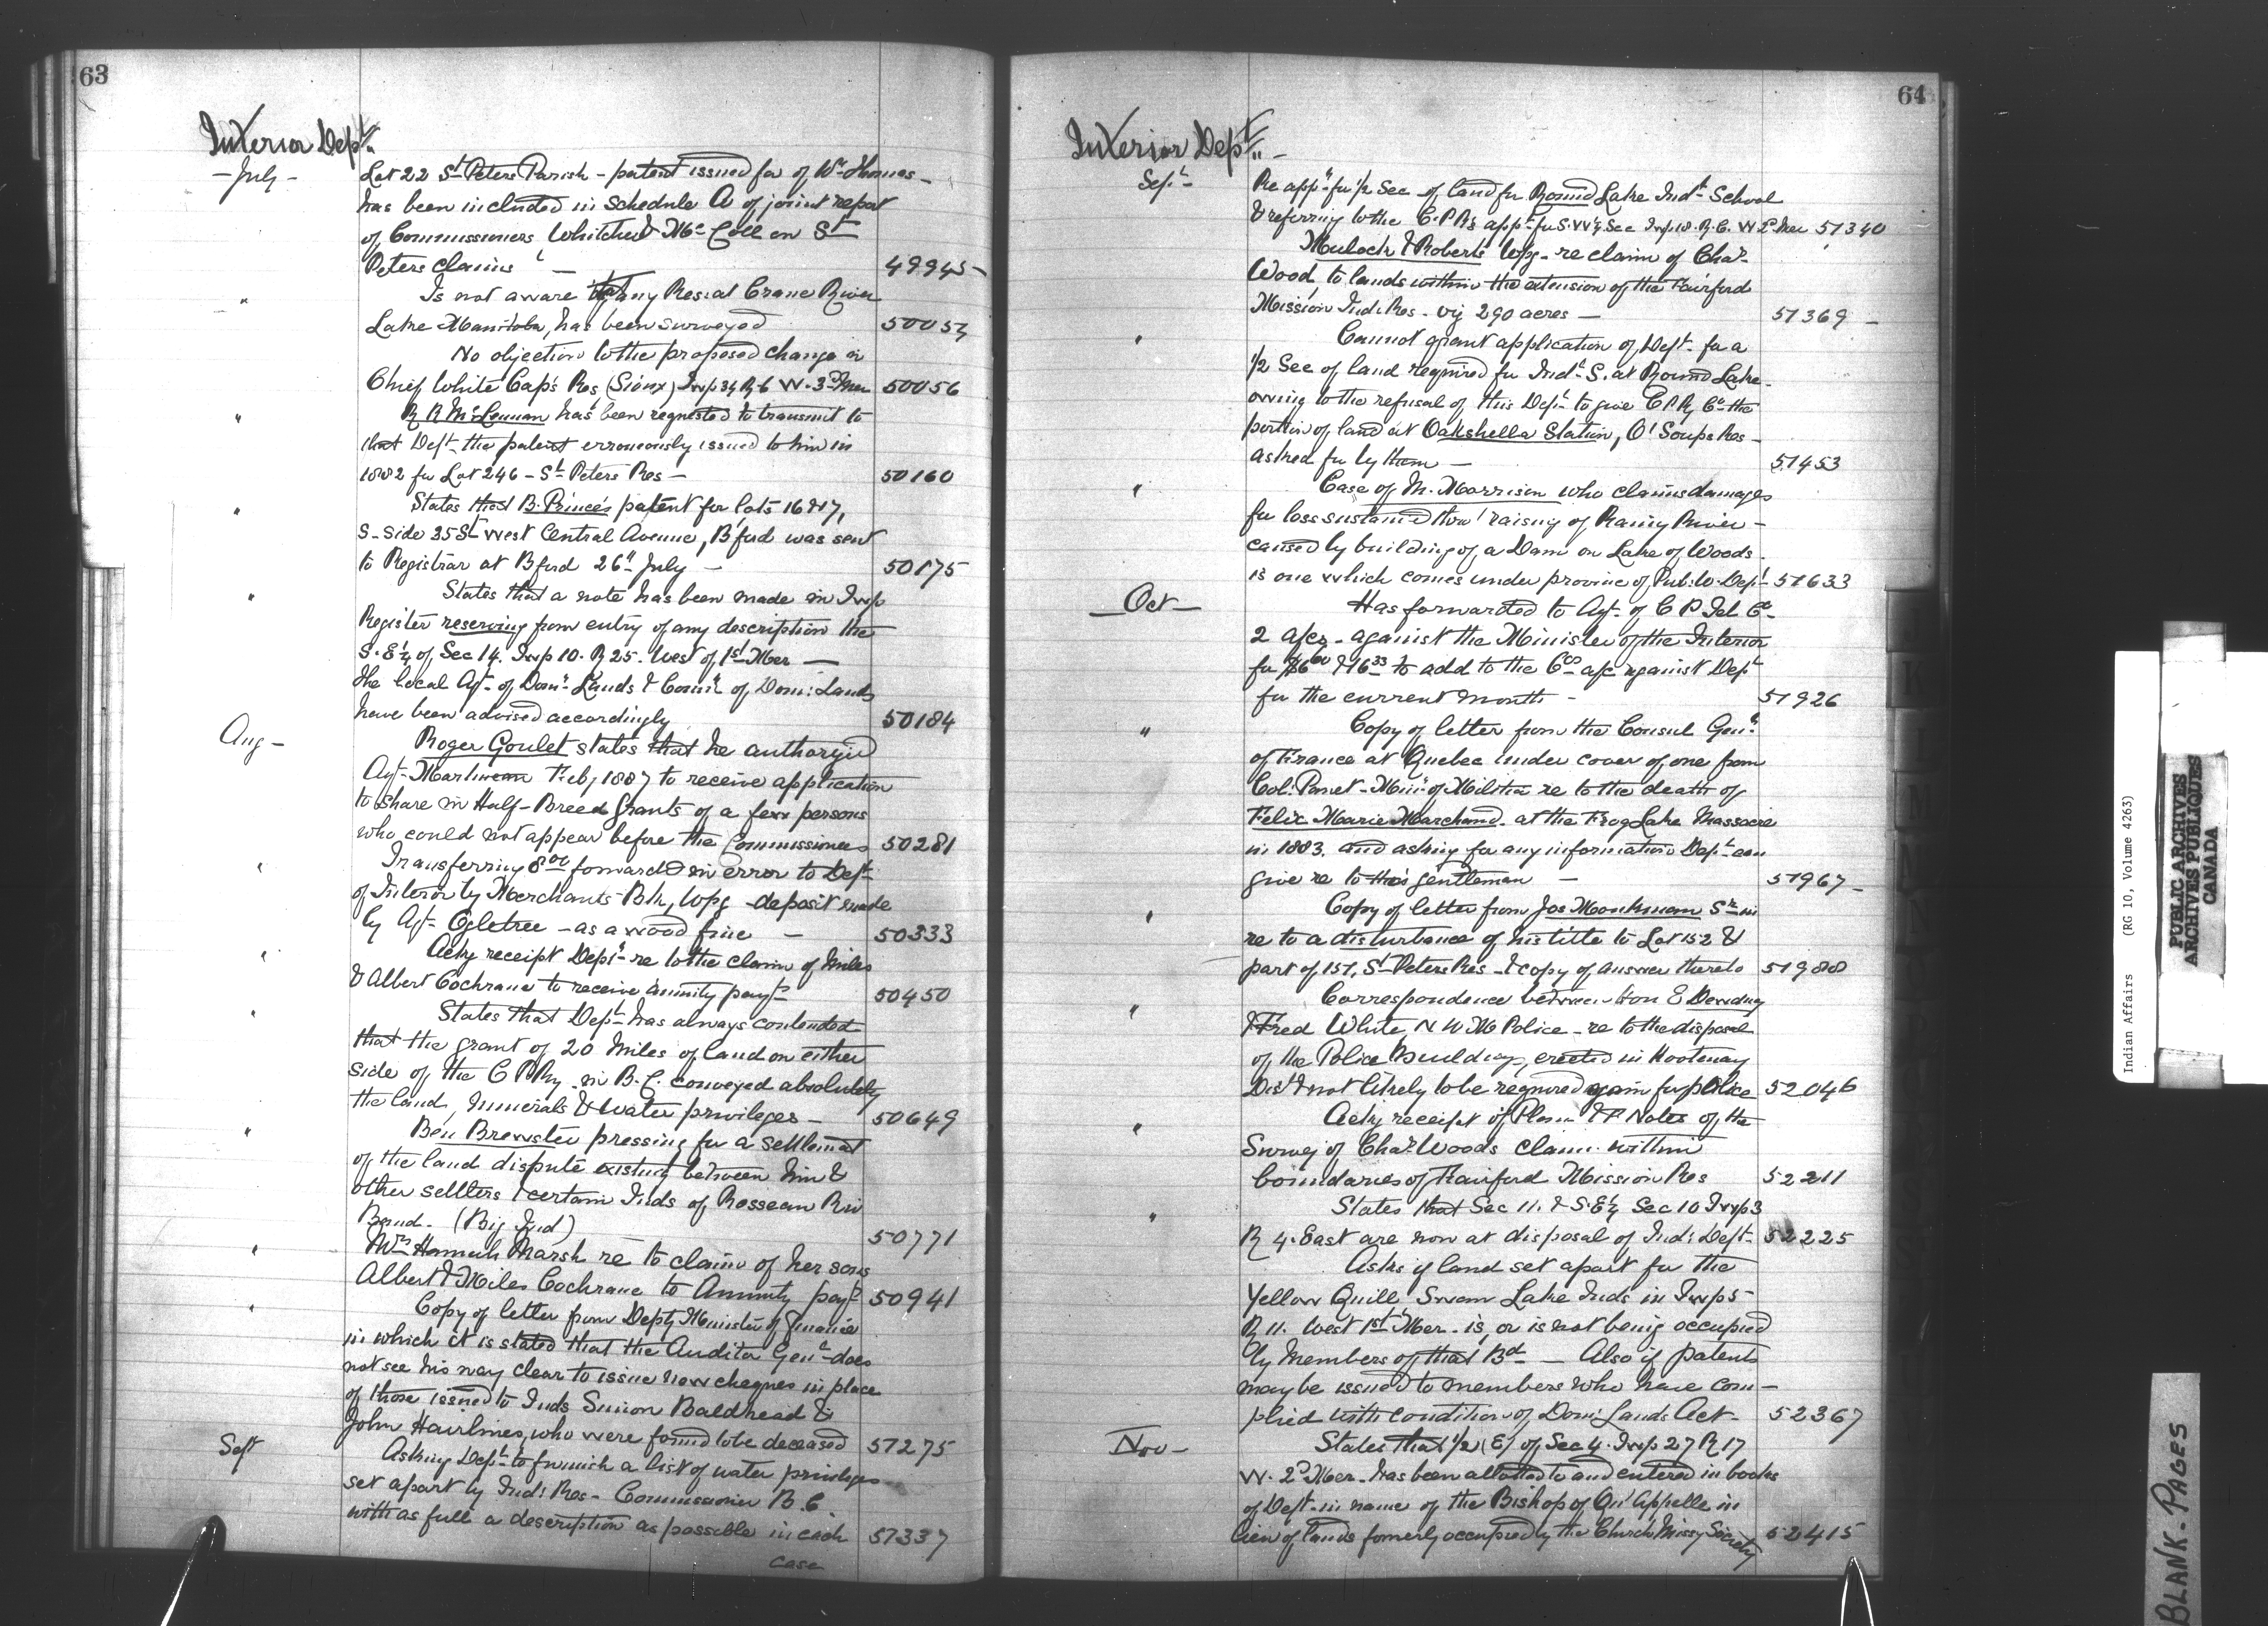 63
Interior Dept.
- July -
Lot 22 St Peters Parish - patent issued for of Wm Homes -
has been included in schedule A of joint report
of Commissioners Whitched & McColl on St
Peters claims - 49945 -
" Is not aware that any Res: at Crane River
Lake Manitoba, has been surveyed 50054
No objection to the proposed change in
Chief White Cap's Res (Sioux) Twp 34 R 6 W. 3rd Mer 50056
" R R McLennan has been requested to transmit to
that Dept. the patent erroneously issued to him in
1882 for Lot 246 - St Peters Res - 50160
" States that B. Prince's patent for lots 16 & 17,
S. side 35 St West Central Avenue, B'ford was sent
to Registrar at B'ford 26th July - 50175
" States that a note has been made in Twp
Register reserving from entry of any description the
S. E ¼ of Sec 14. Twp 10. R 25. West of 1st Mer -
the local Agt. of Domn Lands & Comr of Dom: Lands
have been advised accordingly 50184
Aug -
Roger Goulet states that he authorized
Agt. Martineau Feby 1887 to receive application
to share in Half-Breed Grants of a few persons
who could not appear before the Commissioners 50281
" Transferring 8.00 forwarded in error to Dept.
of Interior by Merchants Bk, Wpg - deposit made
by Agt. Ogletree - as a wood fine - 50333
" Ackg receipt Dept. re to the claim of Miles
& Albert Cochrane to receive annuity payts 50450
" States that Dept. has always contended
that the grant of 20 miles of land on either
side of the C P Ry. in B. C. conveyed absolutely
the land, minerals & water privileges - 50649
" Ben Brewster pressing for a settlement
of the land dispute existing between him &
other settlers & certain Inds of Rosseau Riv
Band. (Big Ind) 50771
" Mrs Hannah Marsh re to claim of her sons
Albert & Miles Cochrane to Annuity payt 50941
" Copy of letter from Depty Minister of Finance
in which it is stated that the Auditor Genl does
not see his way clear to issue new cheques in place
of those issued to Inds Simon Baldhead &
John Hairlines, who were found to be deceased 51275
Sept
Asking Dept. to furnish a list of water privileges
set apart by Ind: Res - Commissioner B. C.
with as full a description as possible in each 51337
case
64
Interior Dept. " -
Sept.
Re appn for ½ Sec - of land for Round Lake Indl School
& referring to the C. P R's appn for S. W ¼ Sec Twp 18. R. 6. W 2d Mer 51340
Muloch & Roberts Wpg - re claim of Chas
Wood, to lands within the extension of the Fairford
Mission Ind: Res - viz 290 acres - 51369 -
" Cannot grant application of Dept. for a
½ Sec of land required for Indl S. at Round Lake -
owing to the refusal of this Dept. to give C P Ry Co. the
portion of land at Oakshella Station, O'Soups Res -
asked for by them - 51453
" Case of M. Morrison who claims damages
for loss sustained thro' raising of Rainy River -
caused by building of a Dam on Lake of Woods.
is one which comes under province of Pub: W. Dept. 51633
- Oct -
Has forwarded to Agt. of C P Tel Co.
2 a/cs - against the Minister of the Interior
for $6.60 & 16.33 to add to the Cos a/c against Dept
for the current month - 51926
" Copy of letter from the Consul Genl.
of France at Quebec under cover of one from
Col: Panet - Minr of Militia re to the death of
Felix Marie Marchand. at the Frog Lake Massacre
in 1883. and asking for any information Dept. can
give re to this gentleman - 51967 -
" Copy of letter from Jos Monkman Sr in
re to a disturbance of his title to Lot 152 &
part of 151, St Peters Res - & copy of answer thereto 51988
" Correspondence between Hon E Dewdney
& Fred White, N W M Police - re to the disposal
of the Police Buildings, erected in Kootenay
Dist & not likely to be required again for police 52046
" Ackg receipt of Plan & F Notes of the
Survey of Chas Woods claim within
boundaries of Fairford Mission Res 52211
" States that Sec 11. & S. E ¼ Sec 10 Twp 3
R 4. East are now at disposal of Ind: Dept. 52225
Asks if land set apart for the
Yellow Quill Swan Lake Inds in Twp 5 -
R 11. West 1st Mer - is, or is not being occupied
by members of that Bd - Also if patents
may be issued to members who have com -
plied with condition of Dom: Lands Act - 52367
Nov -
States that ½ (E) of Sec 4. Twp 27 R 17
W. 2d Mer - has been allotted to and entered in books
of Dept. in name of the Bishop of Qu'Appelle in
lieu of lands formerly occupied by the Church Missy Society 52415
Indian Affairs (RG 10, Volume 4263)
PUBLIC ARCHIVES
ARCHIVES PUBLIQUES
CANADA
BLANK - PAGES